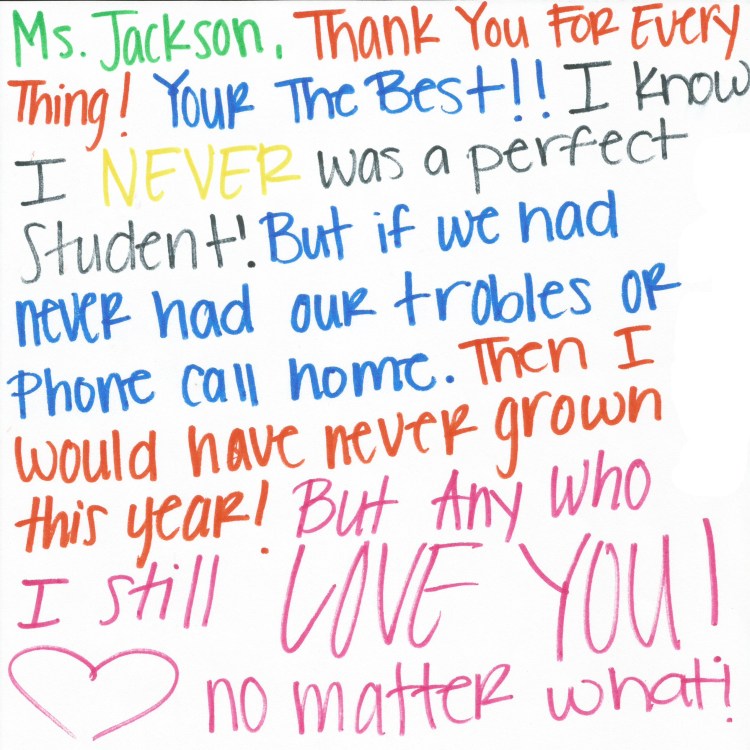 Ms. Jackson, Thank You For Every
Thing! Your The Best!! I know
I NEVER was a perfect
Student!. But if we had
never had our trobles or
Phone call home. Then I
would have never grown
this year! But Any who
I still LOVE YOU!
no matter what!